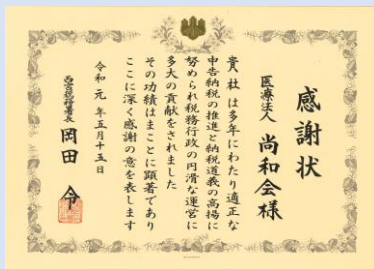 感謝状
医療法人 尚和会様
貴社は多年にわたり適正な
申告納税の推進と納税道義の高揚に
努められ税務行政の円滑な運営に
多大の貢献をされました
その功績はまことに顕著であり
ここに深く感謝の意を表します
令和元年五月十五日
西宮税務署長 岡田 令